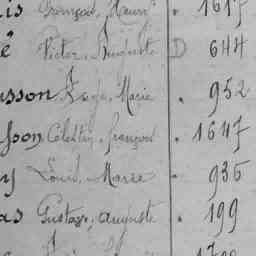 is François, Henri . 1617
ê Victor, Auguste D 644
usson Marie . 952
sson Célestin, françois . 1647
y Louis, Marie . 936
as Gustave, auguste . 199